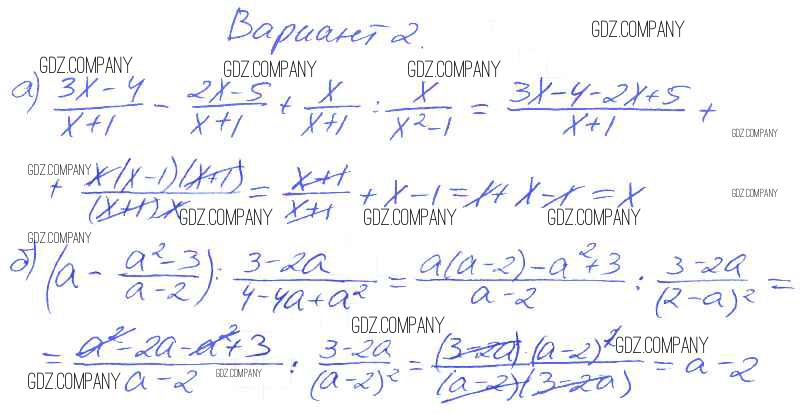 Вариант 2.
GDZ.COMPANY
GDZ.COMPANY GDZ.COMPANY GDZ.COMPANY
а) (3x-4)/(x+1) - (2x-5)/(x+1) + x/(x+1) : x/(x²-1) = (3x-4-2x+5)/(x+1) +
GDZ.COMPANY
GDZ.COMPANY
+ (x(x-1)(x+1))/((x+1)x) = (x+1)/(x+1) + x-1 = 1+x-1 = x
GDZ.COMPANY
GDZ.COMPANY GDZ.COMPANY GDZ.COMPANY
GDZ.COMPANY
б) (a - (a²-3)/(a-2)) : (3-2a)/(4-4a+a²) = (a(a-2)-a²+3)/(a-2) : (3-2a)/(2-a)² =
GDZ.COMPANY
= (a²-2a-a²+3)/(a-2) : (3-2a)/(a-2)² = ((3-2a)·(a-2)²)/((a-2)(3-2a)) = a-2
GDZ.COMPANY
GDZ.COMPANY GDZ.COMPANY